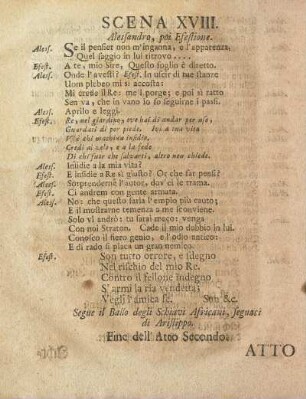 SCENA XVIII.
Alessandro, poi Efestione.
Aless. Se il pensier non m'inganna, e l'apparenza,
Quel saggio in lui ritrovo....
Efest. A te, mio Sire, Questo foglio è diretto.
Aless. Onde l'avesti? Efest. In uscir di tue stanze
Uom plebeo mi si accosta:
Mi crede il Re: me l porge; e poi sì ratto
Sen va, che in vano io fo seguirne i passi.
Aless. Aprilo e leggi.
Efest. Re, nel giardino, ove hai di andar per uso,
Guardati di por piede. Ivi a tua vita
V'ha chi macchina insidie.
Credi al zelo, e a la fede
Di chi fuor che salvarti, altro non chiede.
Aless. Insidie a la mia vita?
Efest. E insidie a Re sì giusto? Or che far pensi?
Aless. Sorprenderne l'autor, dov'ei le trama.
Efest. Ci andrem con gente armata.
Aless. No: che questo faria l'empio più cauto;
E il mostrarne temenza a me sconviene.
Solo vi andrò: tu sirai poco: venga
Con noi Straton. Cade il mio dubbio in lui.
Conosco il fiero genio, e l'odio antico:
E di rado si placa un gran nemico.
Efest. Son tutto orrore, e sdegno
Nel rischio del mio Re.
Contro il fellone indegno
S'armi la ria vendetta;
Vegli l'amica fè. Son &c.
Segue il Ballo degli Schiavi Africani, seguaci
di Aristippo.
Fine dell'Atto Secondo.
ATTO